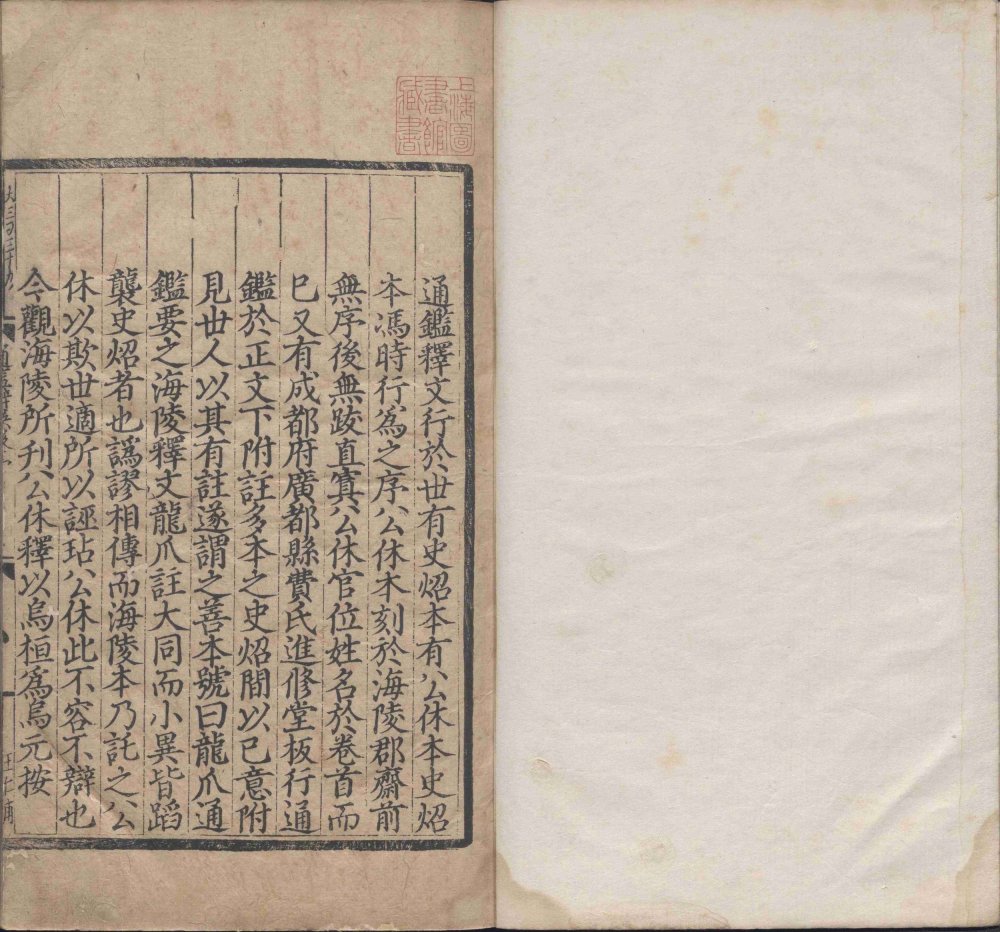 上海圖
書館
臧書
通鑑釋文行於世有史炤本有公休本史炤
本馮時行爲之序公休本刻於海陵郡齋前
無序後無跋直寘公休官位姓名於卷首而
已又有成都府廣都縣費氏進修堂板行通
鑑於正文下附註多本之史炤間以己意附
見世人以其有註遂謂之善本號曰龍爪通
鑑要之海陵釋文龍爪註大同而小異皆蹈
襲史炤者也譌謬相傳而海陵本乃託之公
休以欺世適所以誣玷公休此不容不辯也
今觀海陵所刋公休釋以烏桓爲烏元按